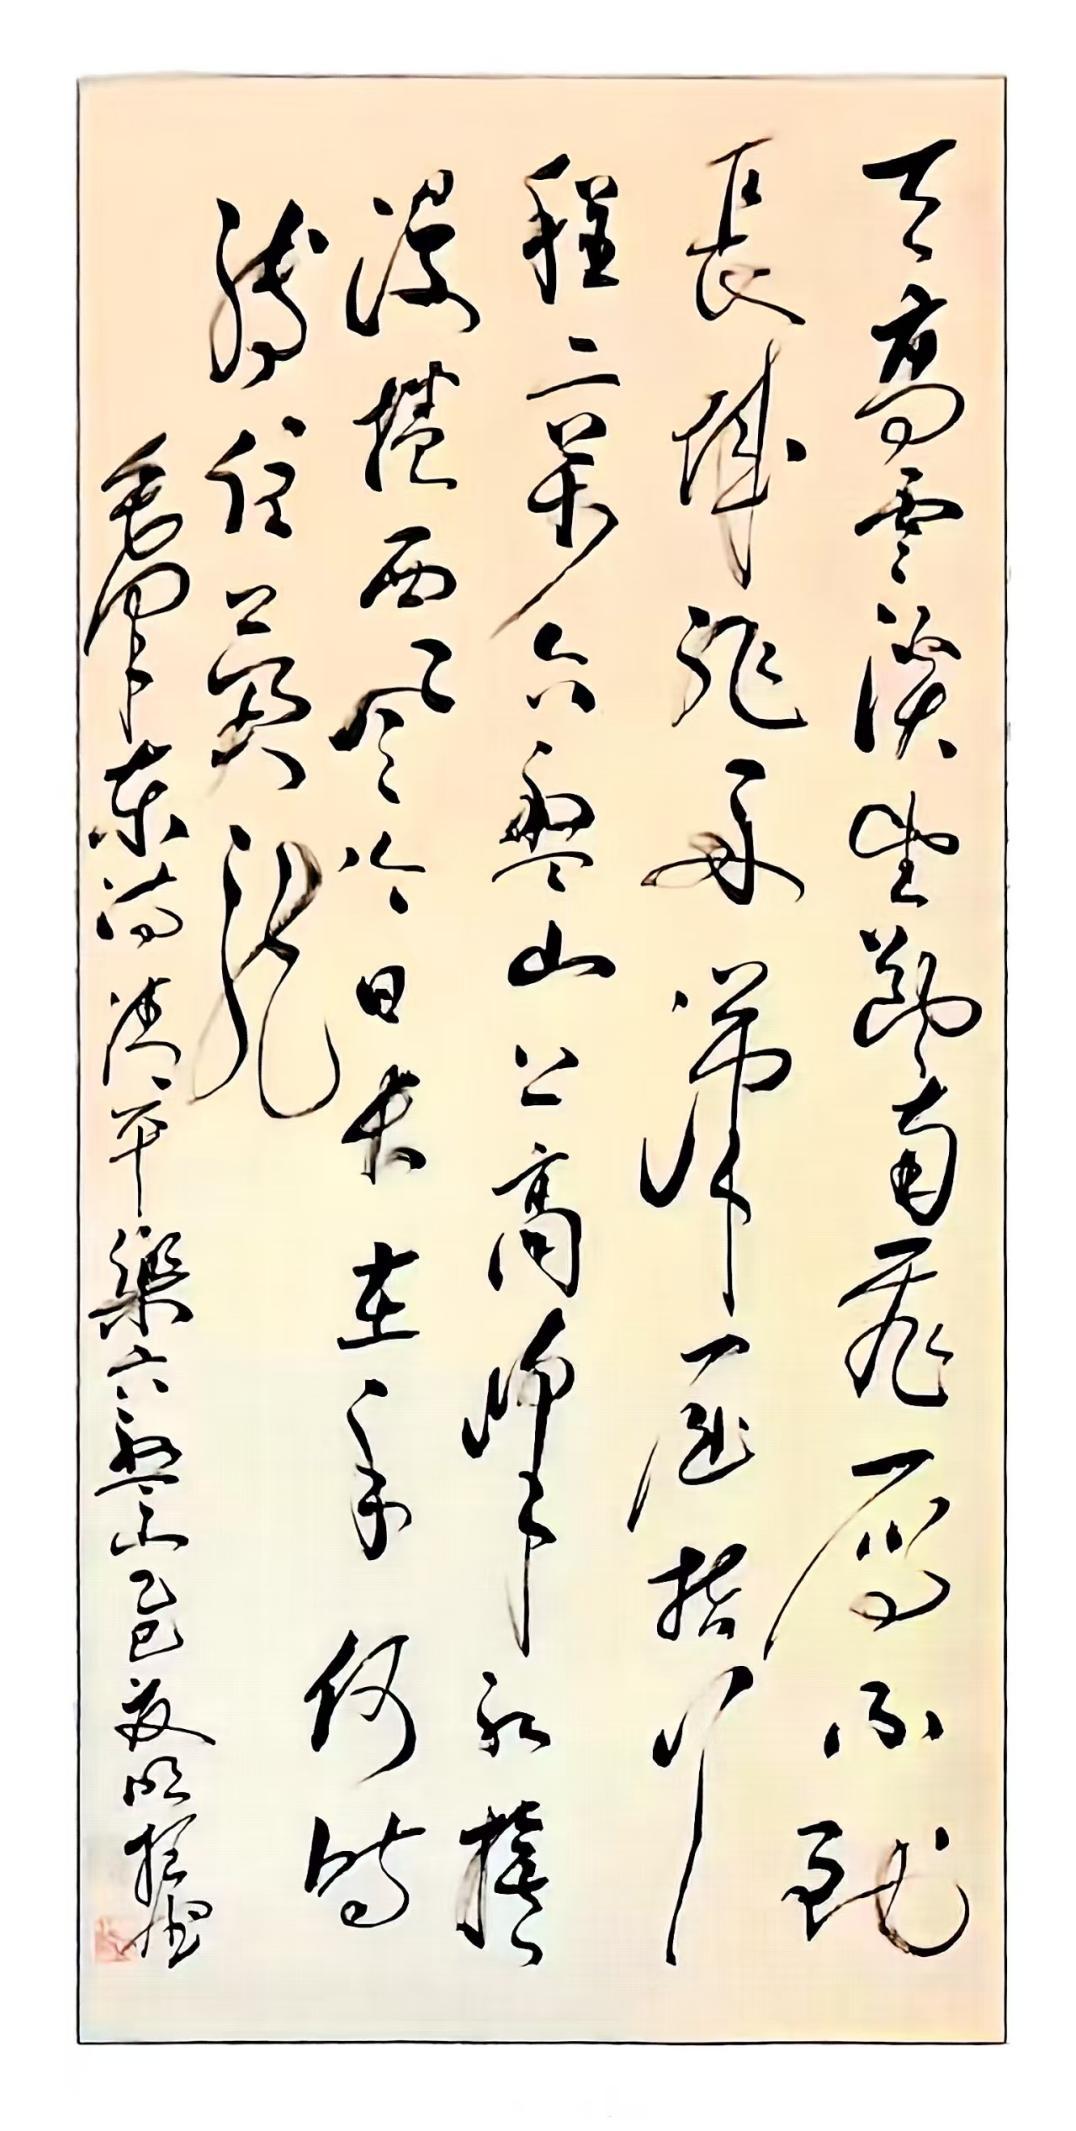 天高雲淡望斷南飛雁不到
長城非好漢屈指行
程二萬六盤山上高峰紅旗
漫捲西風今日長在手何時
縛住蒼龍
毛澤東詩清平樂六盤山乙巳夏明書